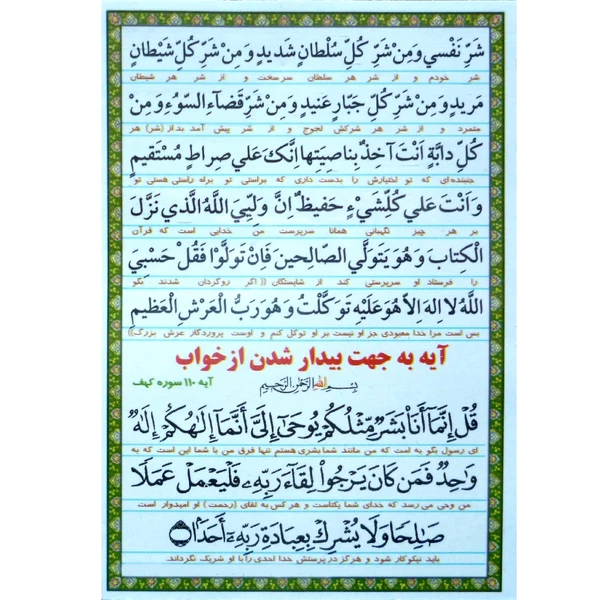 شَرِّ نَفْسي وَ مِنْ شَرِّ كُلِّ سُلْطانٍ شَديدٍ وَ مِنْ شَرِّ كُلِّ شَيْطانٍ
شر خودم و از شر هر سلطان سرسخت و از شر هر شیطان
مَريدٍ وَ مِنْ شَرِّ كُلِّ جَبّارٍ عَنيدٍ وَ مِنْ شَرِّ قَضآءِ السُّوءِ وَ مِنْ
متمرد و از شر هر شرکش لجوج و از شر پیش آمد بد از (شر) هر
كُلِّ دابَّةٍ اَنْتَ آخِذٌ بِناصِيَتِها اِنَّكَ عَلي صِراطٍ مُسْتَقيمٍ
جنبنده ای که تو اختیارش را بدست داری که براستی تو براه راستی هستی تو
وَ اَنْتَ عَلي كُلِّشَيْءٍ حَفيظٌ اِنَّ وَلِيِّيَ اللَّهُ الَّذي نَزَّلَ
بر هر چیز نگهبانی همانا سرپرست من خدایی است که قرآن
الْكِتابَ وَ هُوَ يَتَوَلَّي الصّالِحينَ فَاِنْ تَوَلَّوْا فَقُلْ حَسْبِيَ
را فرستاد او سرپرستی کند از شایستگان (( اگر روگردان شدند بگو
اللَّهُ لا اِلهَ اِلاّ هُوَ عَلَيْهِ تَوَكَّلْتُ وَ هُوَ رَبُّ الْعَرْشِ الْعَظيمِ
بس است مرا خدا معبودی جز او نیست بر او توکل کنم و اوست پروردگار عرش بزرگ))
آیه به جهت بیدار شدن از خواب
بِسْمِ اللهِ الرَّحْمٰنِ الرَّحيمِ
آیه ۱۱۰ سوره کهف
قُلْ إِنَّمَآ أَنَا۠ بَشَرٌ مِّثْلُكُمْ يُوحَىٰٓ إِلَىَّ أَنَّمَآ إِلَٰهُكُمْ إِلَٰهٌ
ای رسول بگو به امت که من مانند شما بشری هستم تنها فرق من با شما این است که به
وَٰحِدٌ فَمَن كَانَ يَرْجُوا۟ لِقَآءَ رَبِّهِۦ فَلْيَعْمَلْ عَمَلًا
من وحی می رسد که خدای شما یکتاست و هر کس به لقای (رحمت) او امیدوار است
صَٰلِحًا وَلَا يُشْرِكْ بِعِبَادَةِ رَبِّهِۦٓ أَحَدًۢا
باید نیکوکار شود و هرگز در پرستش خدا احدی را با او شریک نگرداند.